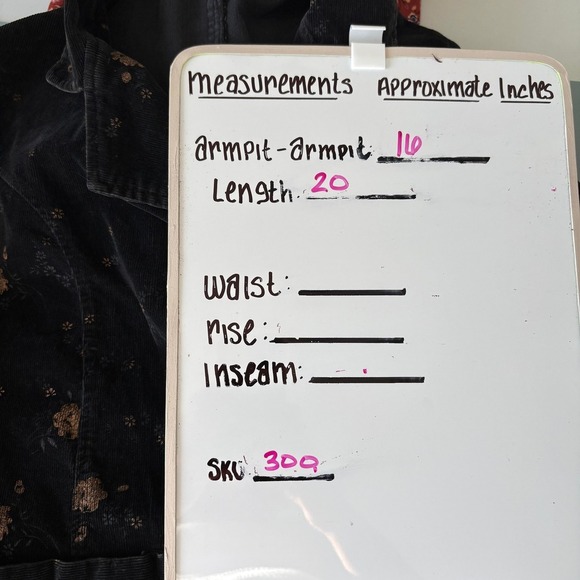 measurements Approximate Inches
armpit-armpit: 16
Length: 20
waist:
rise:
Inseam:
SKU 309